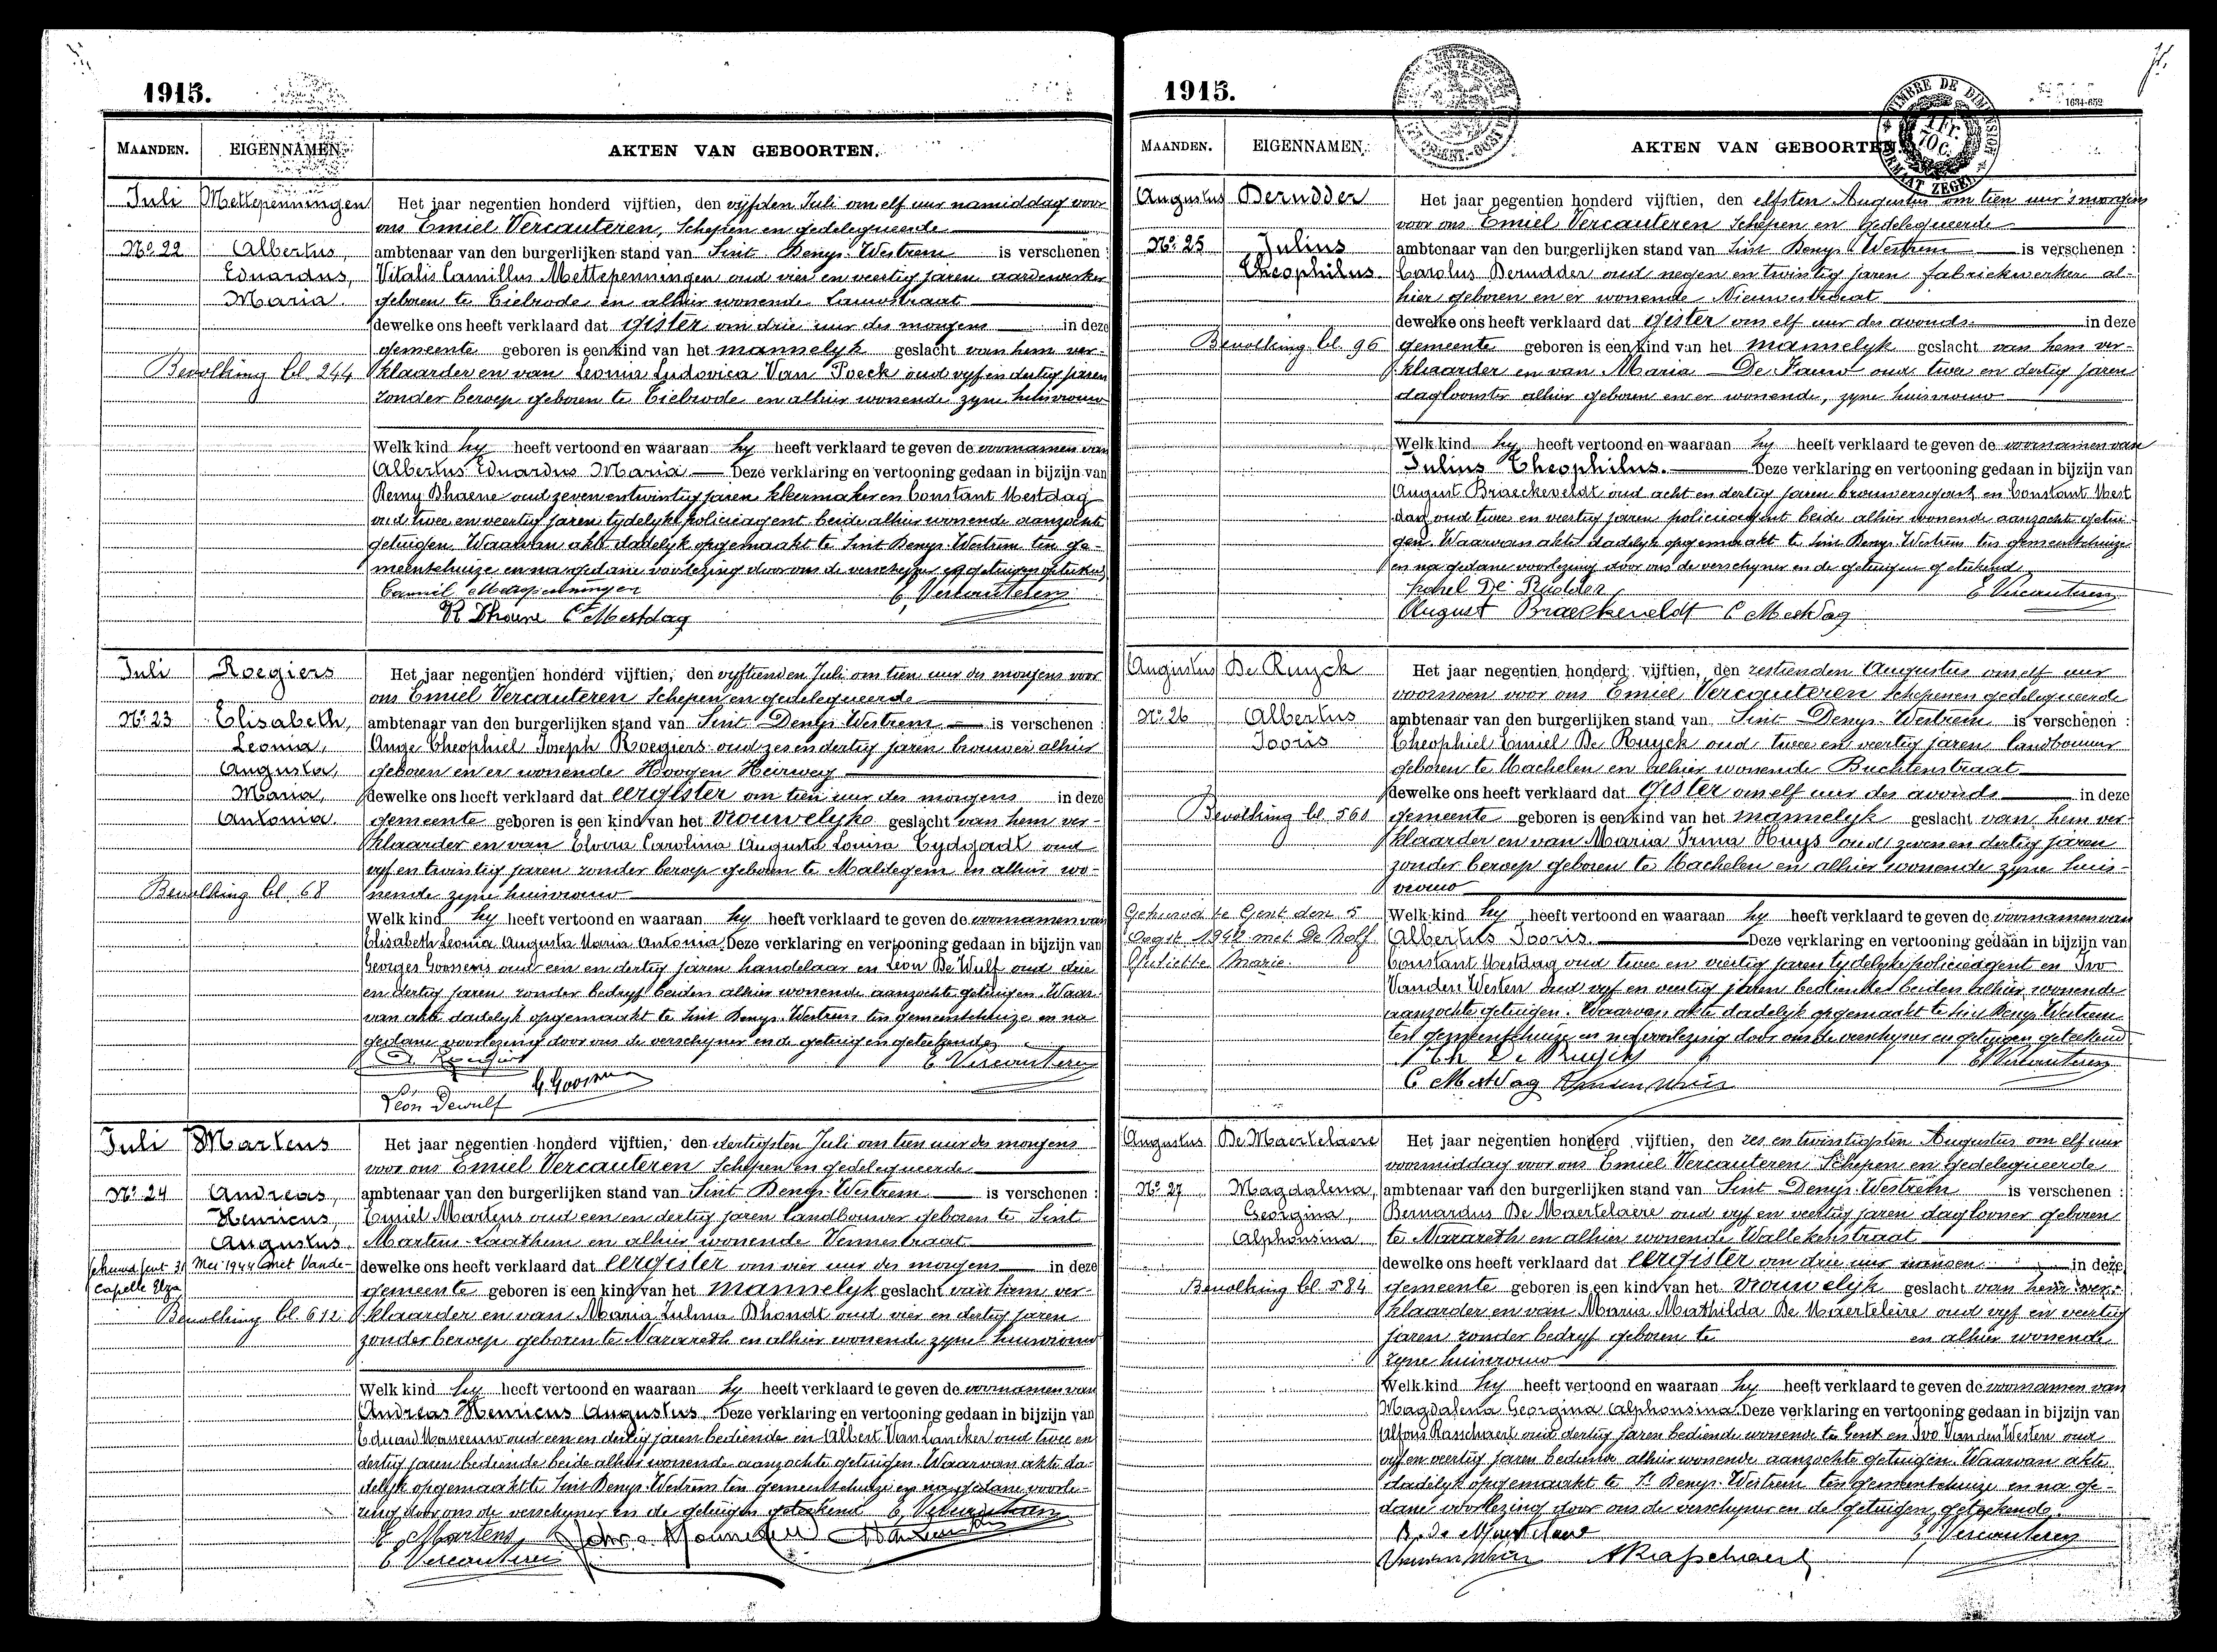 1915.
MAANDEN. EIGENNAMEN. AKTEN VAN GEBOORTEN.
Juli Mettepenningen
No. 22 Albertus,
Eduardus,
Maria.
Bevolking bl. 244
Het jaar negentien honderd vijftien, den vijfden Juli om elf uur namiddag voor
ons Emiel Vercauteren, Schepen en gedelegueerde
ambtenaar van den burgerlijken stand van Sint Denys-Westrem is verschenen :
Vitalis Camillus Mettepenningen oud vier en veertig jaren aardewerker
geboren te Tielrode en alhier wonende
dewelke ons heeft verklaard dat gister om drie uur des morgens in deze
gemeente geboren is een kind van het mannelyk geslacht van hem ver-
klaarder en van Leonia Ludovica Van Poeck oud vyf en dertig jaren
zonder beroep geboren te Tielrode en alhier wonende zyne huisvrouw
Welk kind hy heeft vertoond en waaraan hy heeft verklaard te geven de voornamen van
Albertus Eduardus Maria Deze verklaring en vertooning gedaan in bijzijn van
Remy Dhaene oud zeven en twintig jaren en Constant Mestdag
oud twee en veertig jaren tydelyke policieagent beide alhier wonende aanzochte
getuigen. Waarvan akte dadelyk opgemaakt te Sint Denys-Westrem ten ge-
meentehuize en na gedane voorlezing door ons de verschyner en getuigen geteekend
E. Vercauteren
C Mestdag
Juli Roegiers
No. 23 Elisabeth,
Leonia,
Augusta,
Maria,
Antonia.
Bevolking bl. 68
Het jaar negentien honderd vijftien, den vyftienden Juli om tien uur des morgens voor
ons Emiel Vercauteren Schepen en gedelegueerde
ambtenaar van den burgerlijken stand van Sint Denys-Westrem is verschenen :
Ange Theophiel Joseph Roegiers oud zes en dertig jaren brouwer alhier
geboren en er wonende Hoogen Heirweg
dewelke ons heeft verklaard dat eergister om tien uur des morgens in deze
gemeente geboren is een kind van het vrouwelyke geslacht van hem ver-
klaarder en van Elvira Carolina Augusta Louisa Tydgadt oud
vyf en twintig jaren zonder beroep geboren te Maldegem en alhier wo-
nende zyne huisvrouw
Welk kind hy heeft vertoond en waaraan hy heeft verklaard te geven de voornamen van
Elisabeth Leonia Augusta Maria Antonia. Deze verklaring en vertooning gedaan in bijzijn van
Georges Goossens oud een en dertig jaren handelaar en Leon De Wulf oud drie
en dertig jaren zonder bedryf beiden alhier wonende aanzochte getuigen. Waar-
van akte dadelyk opgemaakt te Sint Denys-Westrem ten gemeentehuize en na
gedane voorlezing door ons de verschyner en de getuigen geteekend.
E. Vercauteren
G. Goossens
Léon Dewulf
Juli Martens
No. 24 Andreas,
Henricus,
Augustus.
Gehuwd Gent 31 Mei 1944 met Vande-
Capelle Elza
Bevolking bl. 612
Het jaar negentien honderd vijftien, den dertigsten Juli om tien uur des morgens
voor ons Emiel Vercauteren Schepen en gedelegueerde
ambtenaar van den burgerlijken stand van Sint Denys-Westrem is verschenen :
Emiel Martens oud een en dertig jaren landbouwer geboren te Sint
Martens-Laathem en alhier wonende Vennestraat
dewelke ons heeft verklaard dat eergister om vier uur des morgens in deze
gemeente geboren is een kind van het mannelyk geslacht van hem ver-
klaarder en van Maria Dhondt oud vier en dertig jaren
zonder beroep geboren te Nazareth en alhier wonende zyne huisvrouw
Welk kind hy heeft vertoond en waaraan hy heeft verklaard te geven de voornamen van
Andreas Henricus Augustus. Deze verklaring en vertooning gedaan in bijzijn van
Eduard oud een en dertig jaren bediende en Albert Van Lancker oud twee en
dertig jaren bediende beide alhier wonende aanzochte getuigen. Waarvan akte da-
delyk opgemaakt te Sint Denys-Westrem ten gemeentehuize en na gedane voorle-
zing door ons de verschyner en de getuigen geteekend E. Vercauteren
E Martens
E Vercauteren
1915.
TIMBRE DE DIMENSION
1 Fr. 70 C.
FORMAAT ZEGEL
1634-652
MAANDEN. EIGENNAMEN. AKTEN VAN GEBOORTEN.
Augustus Derudder
No. 25 Julius
Theophilus
Bevolking bl. 96
Het jaar negentien honderd vijftien, den elfsten Augustus om tien uur 's morgens
voor ons Emiel Vercauteren Schepen en gedelegueerde
ambtenaar van den burgerlijken stand van Sint Denys-Westrem is verschenen :
Carolus Derudder oud negen en twintig jaren fabriekwerker al-
hier geboren en er wonende Nieuwestraat
dewelke ons heeft verklaard dat gister om elf uur des avonds in deze
gemeente geboren is een kind van het mannelyk geslacht van hem ver-
klaarder en van Maria De Pauw oud twee en dertig jaren
dagloonster alhier geboren en er wonende, zyne huisvrouw
Welk kind hy heeft vertoond en waaraan hy heeft verklaard te geven de voornamen van
Julius Theophilus. Deze verklaring en vertooning gedaan in bijzijn van
August Braeckeveldt oud acht en dertig jaren brouwersgast en Constant Mest
dag oud twee en veertig jaren policieagent beide alhier wonende aanzochte getui-
gen. Waarvan akte dadelyk opgemaakt te Sint Denys-Westrem ten gemeentehuize
en na gedane voorlezing door ons de verschyner en de getuigen geteekend
Karel De Rudder E Vercauteren
August Braeckeveldt C Mestdag
Augustus De Ruyck
No. 26 Albertus
Jooris
Bevolking bl. 561
Gehuwd te Gent den 5
Oogst 1942 met De Wolf
Juliette Marie.
Het jaar negentien honderd vijftien, den zestienden Augustus om elf uur
voornoen voor ons Emiel Vercauteren Schepen en gedelegueerde
ambtenaar van den burgerlijken stand van Sint Denys-Westrem is verschenen :
Theophiel Emiel De Ruyck oud twee en veertig jaren landbouwer
geboren te Machelen en alhier wonende Buchtenstraat
dewelke ons heeft verklaard dat gister om elf uur des avonds in deze
gemeente geboren is een kind van het mannelyk geslacht van hem ver-
klaarder en van Maria Irma Huys oud zeven en dertig jaren
zonder beroep geboren te Machelen en alhier wonende zyne huis-
vrouw
Welk kind hy heeft vertoond en waaraan hy heeft verklaard te geven de voornamen van
Albertus Jooris. Deze verklaring en vertooning gedaan in bijzijn van
Constant Mestdag oud twee en veertig jaren tydelyke policieagent en Ivo
Vanden Westen oud vyf en veertig jaren bediende beiden alhier wonende
aanzochte getuigen. Waarvan akte dadelyk opgemaakt te Sint Denys-Westrem
ten gemeentehuize en na voorlezing door ons de verschyner en getuigen geteekend
Th De Ruyck E Vercauteren
C Mestdag
Augustus De Maertelaere
No. 27 Magdalena,
Georgina,
Alphonsina
Bevolking bl. 584
Het jaar negentien honderd vijftien, den zes en twintigsten Augustus om elf uur
voormiddag voor ons Emiel Vercauteren Schepen en gedelegueerde
ambtenaar van den burgerlijken stand van Sint Denys-Westrem is verschenen :
Bernardus De Maertelaere oud vyf en veertig jaren daglooner geboren
te Nazareth en alhier wonende Wallekenstraat
dewelke ons heeft verklaard dat eergister om drie uur in deze
gemeente geboren is een kind van het vrouwelyk geslacht van hem ver-
klaarder en van Maria Mathilda De Maerteleire oud vyf en veertig
jaren zonder bedryf geboren te en alhier wonende
zyne huisvrouw
Welk kind hy heeft vertoond en waaraan hy heeft verklaard te geven de voornamen van
Magdalena Georgina Alphonsina. Deze verklaring en vertooning gedaan in bijzijn van
Alfons Rasschaert oud dertig jaren bediende wonende te Gent en Ivo Vanden Westen oud
vyf en veertig jaren bediende alhier wonende aanzochte getuigen. Waarvan akte
dadelyk opgemaakt te St Denys-Westrem ten gemeentehuize en na ge-
dane voorlezing door ons de verschyner en de getuigen geteekend.
B. de Maertelaere E Vercauteren
A Rasschaert